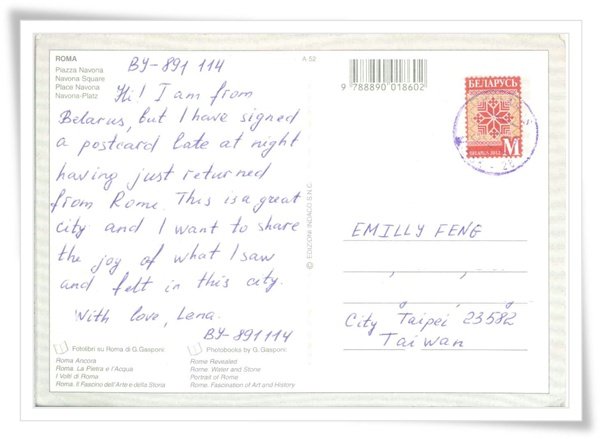 ROMA
Piazza Navona
Navona Square
Place Navona
Navona-Platz
BY-891 114
A 52
9 788890 018602
БЕЛАРУСЬ
M
BELARUS 2012
Hi! I am from
Belarus, but I have signed
a postcard late at night
having just returned
from Rome. This is a great
city and I want to share
the joy of what I saw
and felt in this city.
With love, Lena.
BY-891114
© EDIZIONI INDACO S.N.C.
EMILLY FENG
City Taipei 23582
Taiwan
Fotolibri su Roma di G.Gasponi:
Roma Ancora
Roma. La Pietra e l'Acqua
I Volti di Roma
Roma. Il Fascino dell'Arte e della Storia
Photobooks by G.Gasponi:
Rome Revealed
Rome. Water and Stone
Portrait of Rome
Rome. Fascination of Art and History